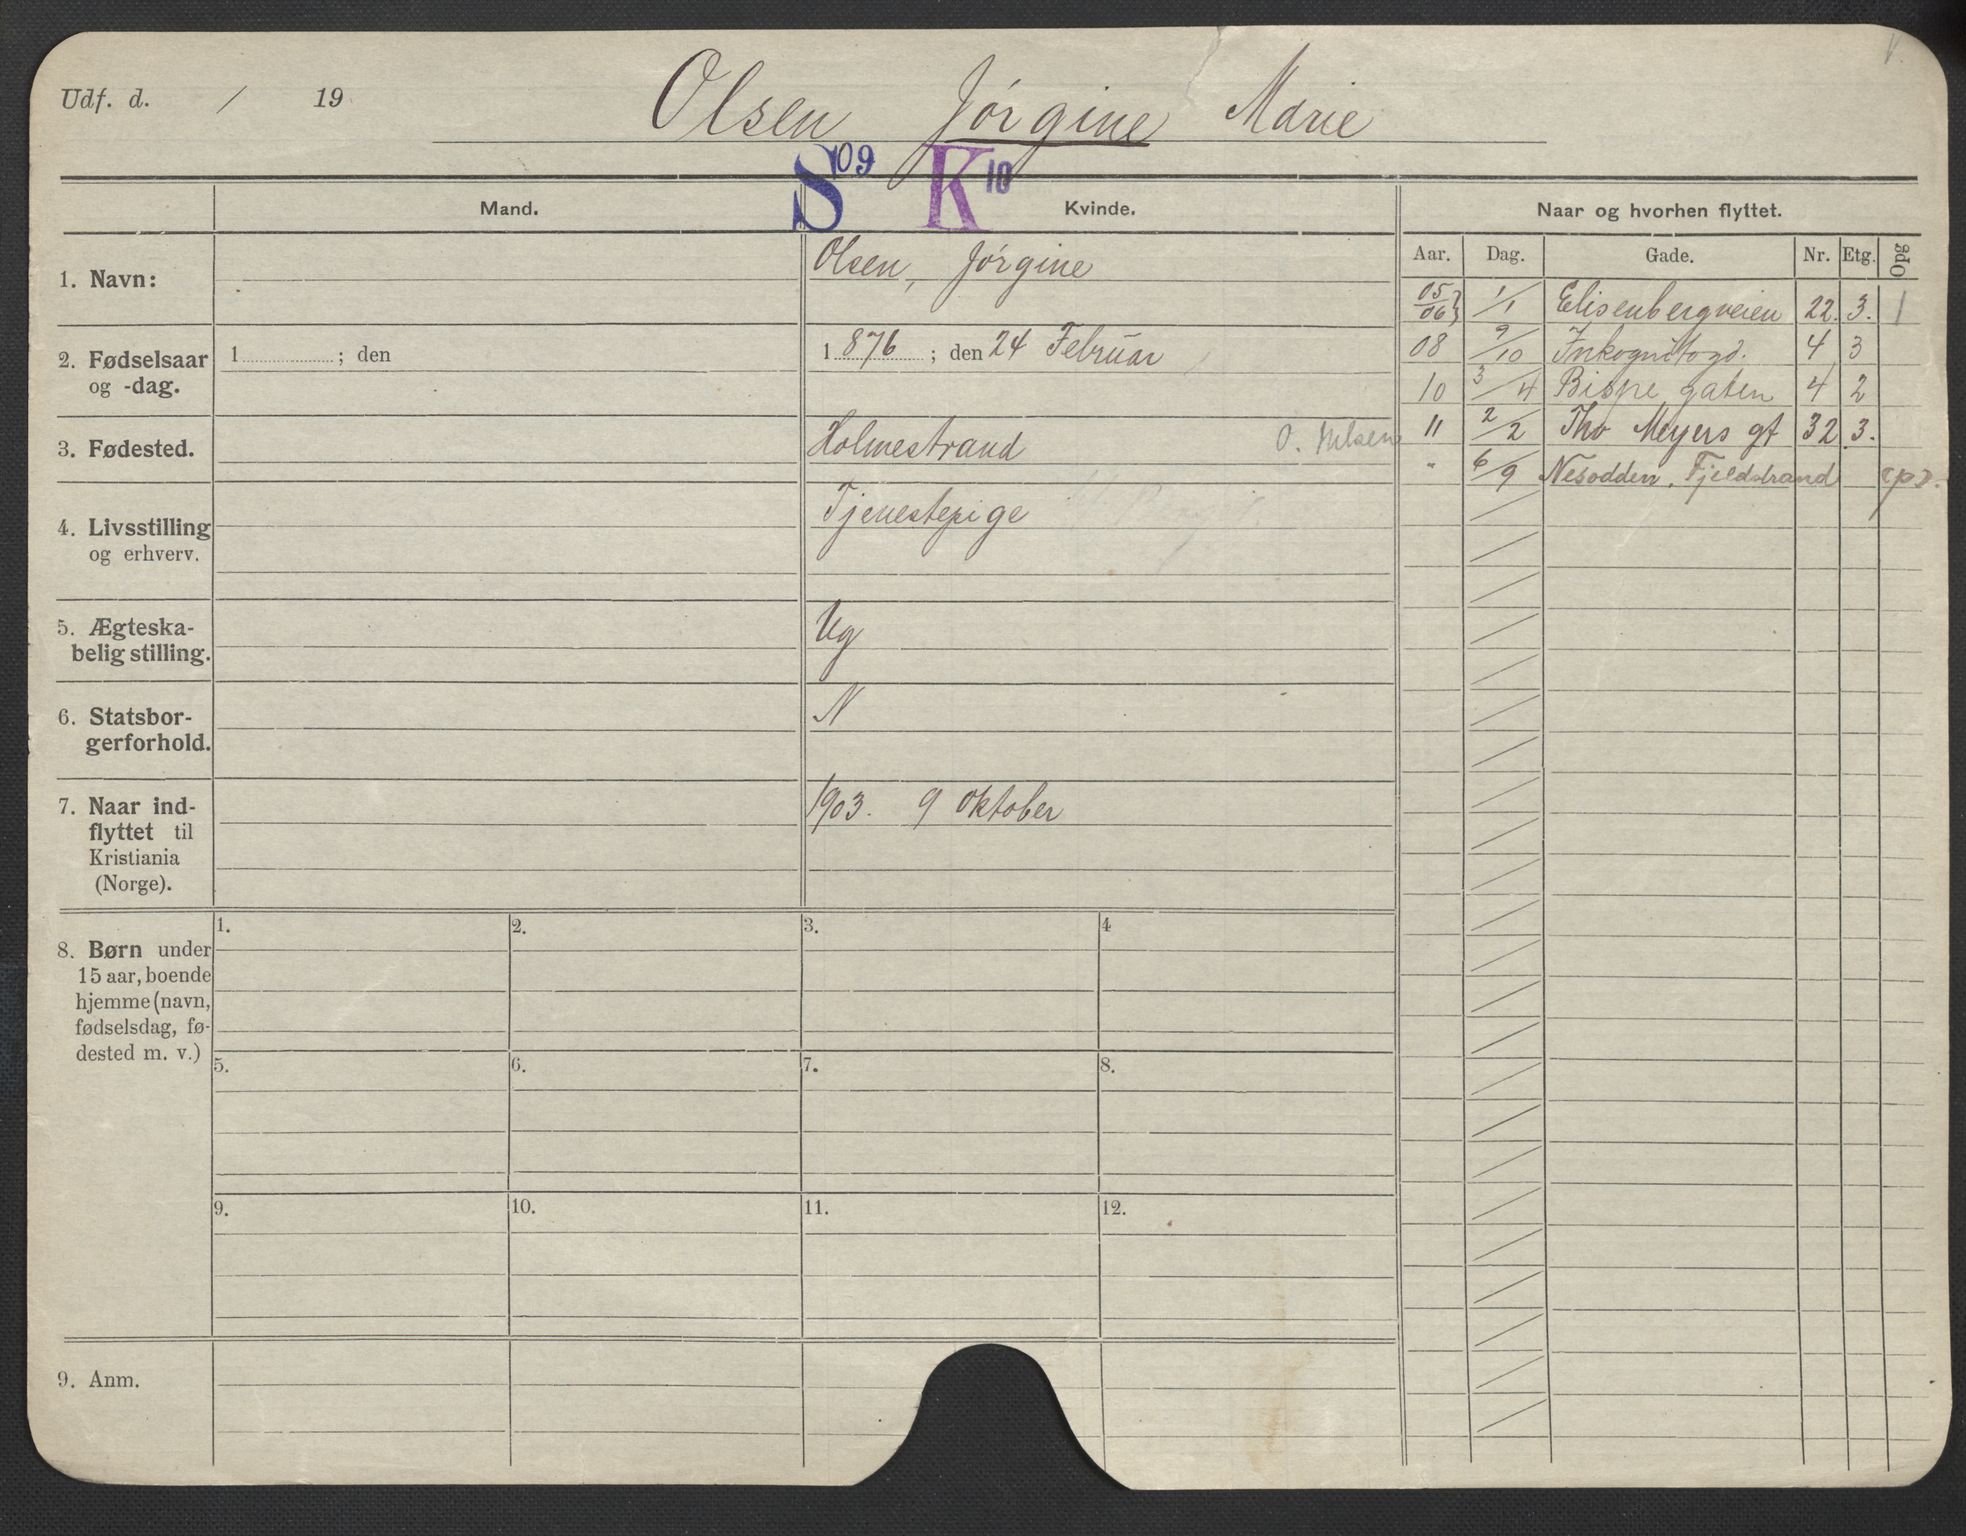 Udf. d. / 19
Olsen Jørgine Marie
S 09 K 10
Mand. Kvinde. Naar og hvorhen flyttet.
Aar. Dag. Gade. Nr. Etg. Opg
1. Navn: Olsen, Jørgine
2. Fødselsaar 1 ; den 1 876 ; den 24 Februar
og -dag.
3. Fødested. Holmestrand O. Nilsen
4. Livsstilling Tjenestepige
og erhverv.
5. Ægteska- Ug
belig stilling.
6. Statsbor- N
gerforhold.
7. Naar ind- 1903. 9 Oktober
flyttet til
Kristiania
(Norge).
05/06 1/1 Elisenbergveien 22. 3. 1
08 9/10 Inkognitogd. 4 3
10 3/4 Bispe gaten 4 2
11 2/2 Tho Meyers gt 32 3.
" 6/9 Nesodden, Fjeldstrand opz.
8. Børn under
15 aar, boende
hjemme (navn,
fødselsdag, fø-
dested m. v.)
1. 2. 3. 4
5. 6. 7. 8.
9. 10. 11. 12.
9. Anm.